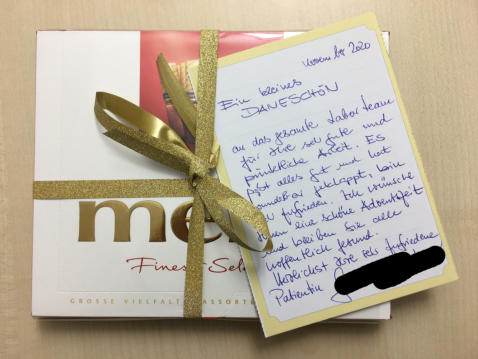 November 2020
Ein kleines
DANESCHÖN
an das gesamte Laborteam
für Ihre sehr gute und
pünktliche Arbeit. Es
passt alles gut und hat
wunderbar geklappt, bin
sehr zufrieden. Ich wünsche
Ihnen eine schöne Adventszeit
und bleiben Sie alle
hoffentlich gesund.
Herzlichst Ihre sehr zufriedene
Patientin
mer
Finest Sele
GROSSE VIELFALT ASSORT